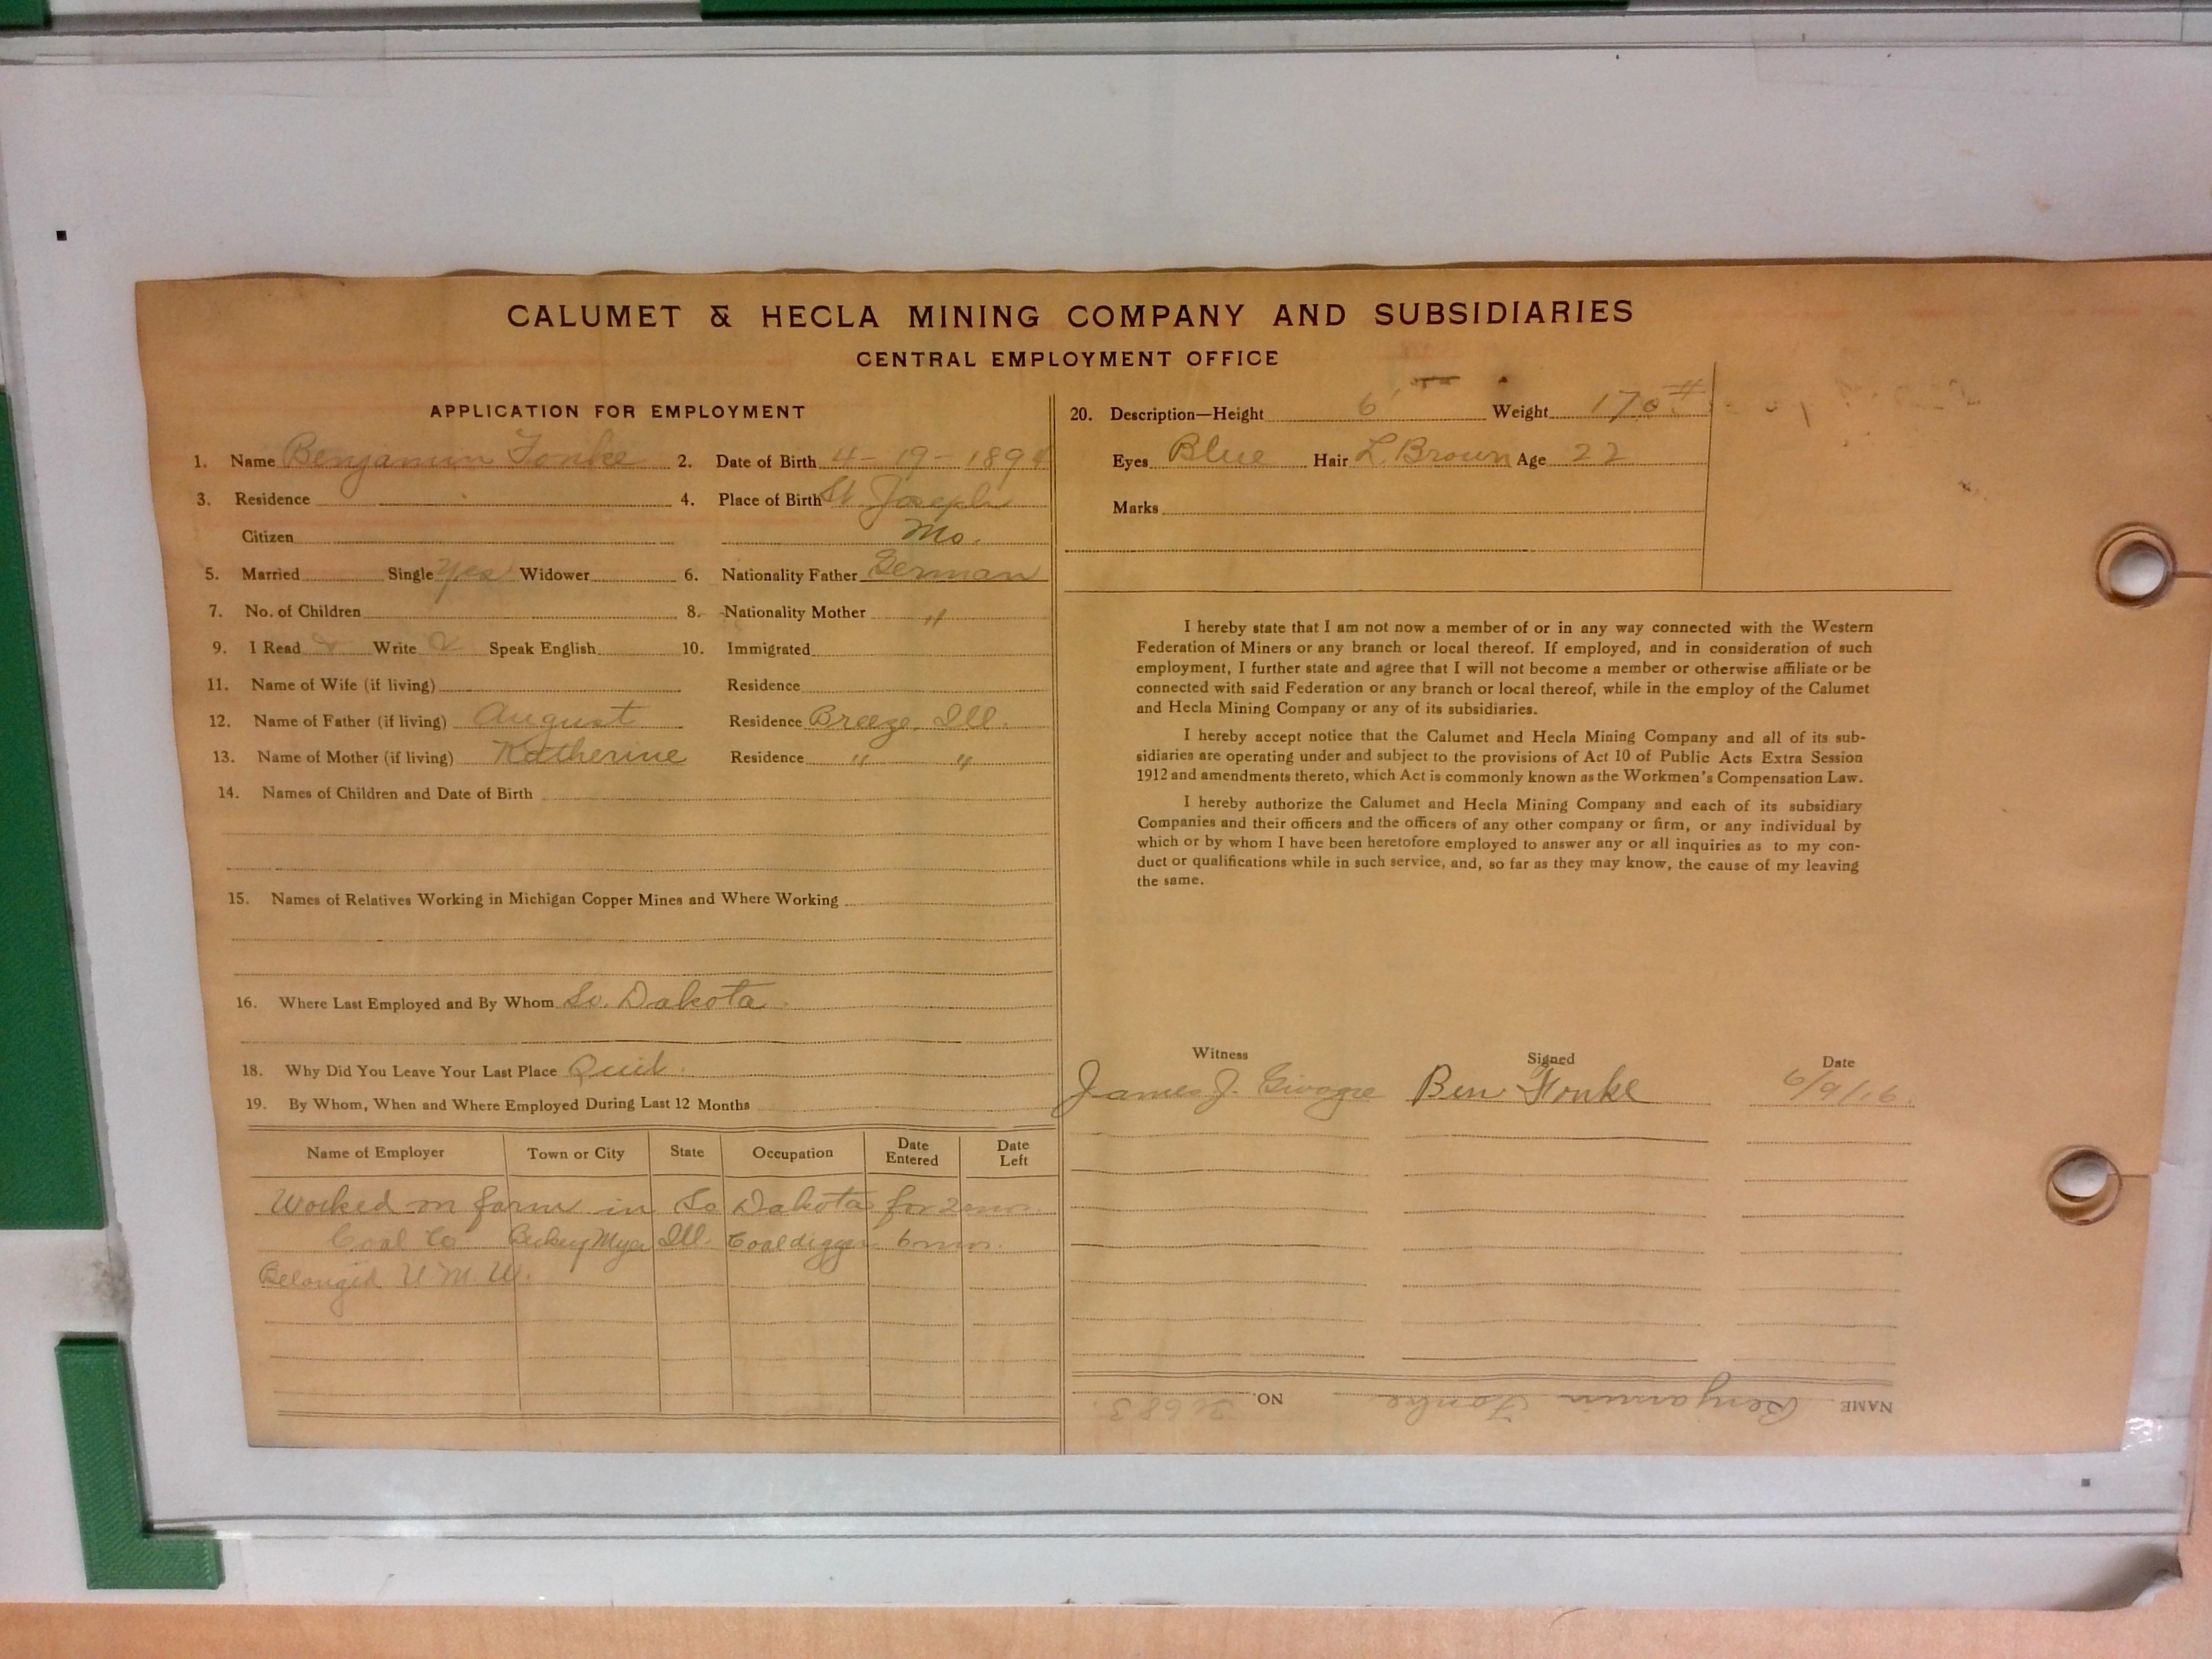 CALUMET & HECLA MINING COMPANY AND SUBSIDIARIES
CENTRAL EMPLOYMENT OFFICE
APPLICATION FOR EMPLOYMENT
1. Name Benjamin Fonke 2. Date of Birth 4-19-1894
3. Residence 4. Place of Birth St Joseph
Citizen Mo.
5. Married Single Yes Widower 6. Nationality Father German
7. No. of Children 8. Nationality Mother "
9. I Read Write Speak English 10. Immigrated
11. Name of Wife (if living) Residence
12. Name of Father (if living) August Residence Breeze, Ill.
13. Name of Mother (if living) Katherine Residence " "
14. Names of Children and Date of Birth
15. Names of Relatives Working in Michigan Copper Mines and Where Working
16. Where Last Employed and By Whom So. Dakota.
18. Why Did You Leave Your Last Place Quit.
19. By Whom, When and Where Employed During Last 12 Months
Name of Employer Town or City State Occupation Date Entered Date Left
Worked on farm in So Dakota for 2 mos.
Coal Co Ill. Coal digger 6 mos.
Belonged U.M.W.
20. Description—Height 6' Weight 170#
Eyes Blue Hair L. Brown Age 22
Marks
I hereby state that I am not now a member of or in any way connected with the Western
Federation of Miners or any branch or local thereof. If employed, and in consideration of such
employment, I further state and agree that I will not become a member or otherwise affiliate or be
connected with said Federation or any branch or local thereof, while in the employ of the Calumet
and Hecla Mining Company or any of its subsidiaries.
I hereby accept notice that the Calumet and Hecla Mining Company and all of its sub-
sidiaries are operating under and subject to the provisions of Act 10 of Public Acts Extra Session
1912 and amendments thereto, which Act is commonly known as the Workmen's Compensation Law.
I hereby authorize the Calumet and Hecla Mining Company and each of its subsidiary
Companies and their officers and the officers of any other company or firm, or any individual by
which or by whom I have been heretofore employed to answer any or all inquiries as to my con-
duct or qualifications while in such service, and, so far as they may know, the cause of my leaving
the same.
Witness Signed Date
James J. Ben Fonke 6/9/16.
NAME Benjamin Fonke NO. 21683.